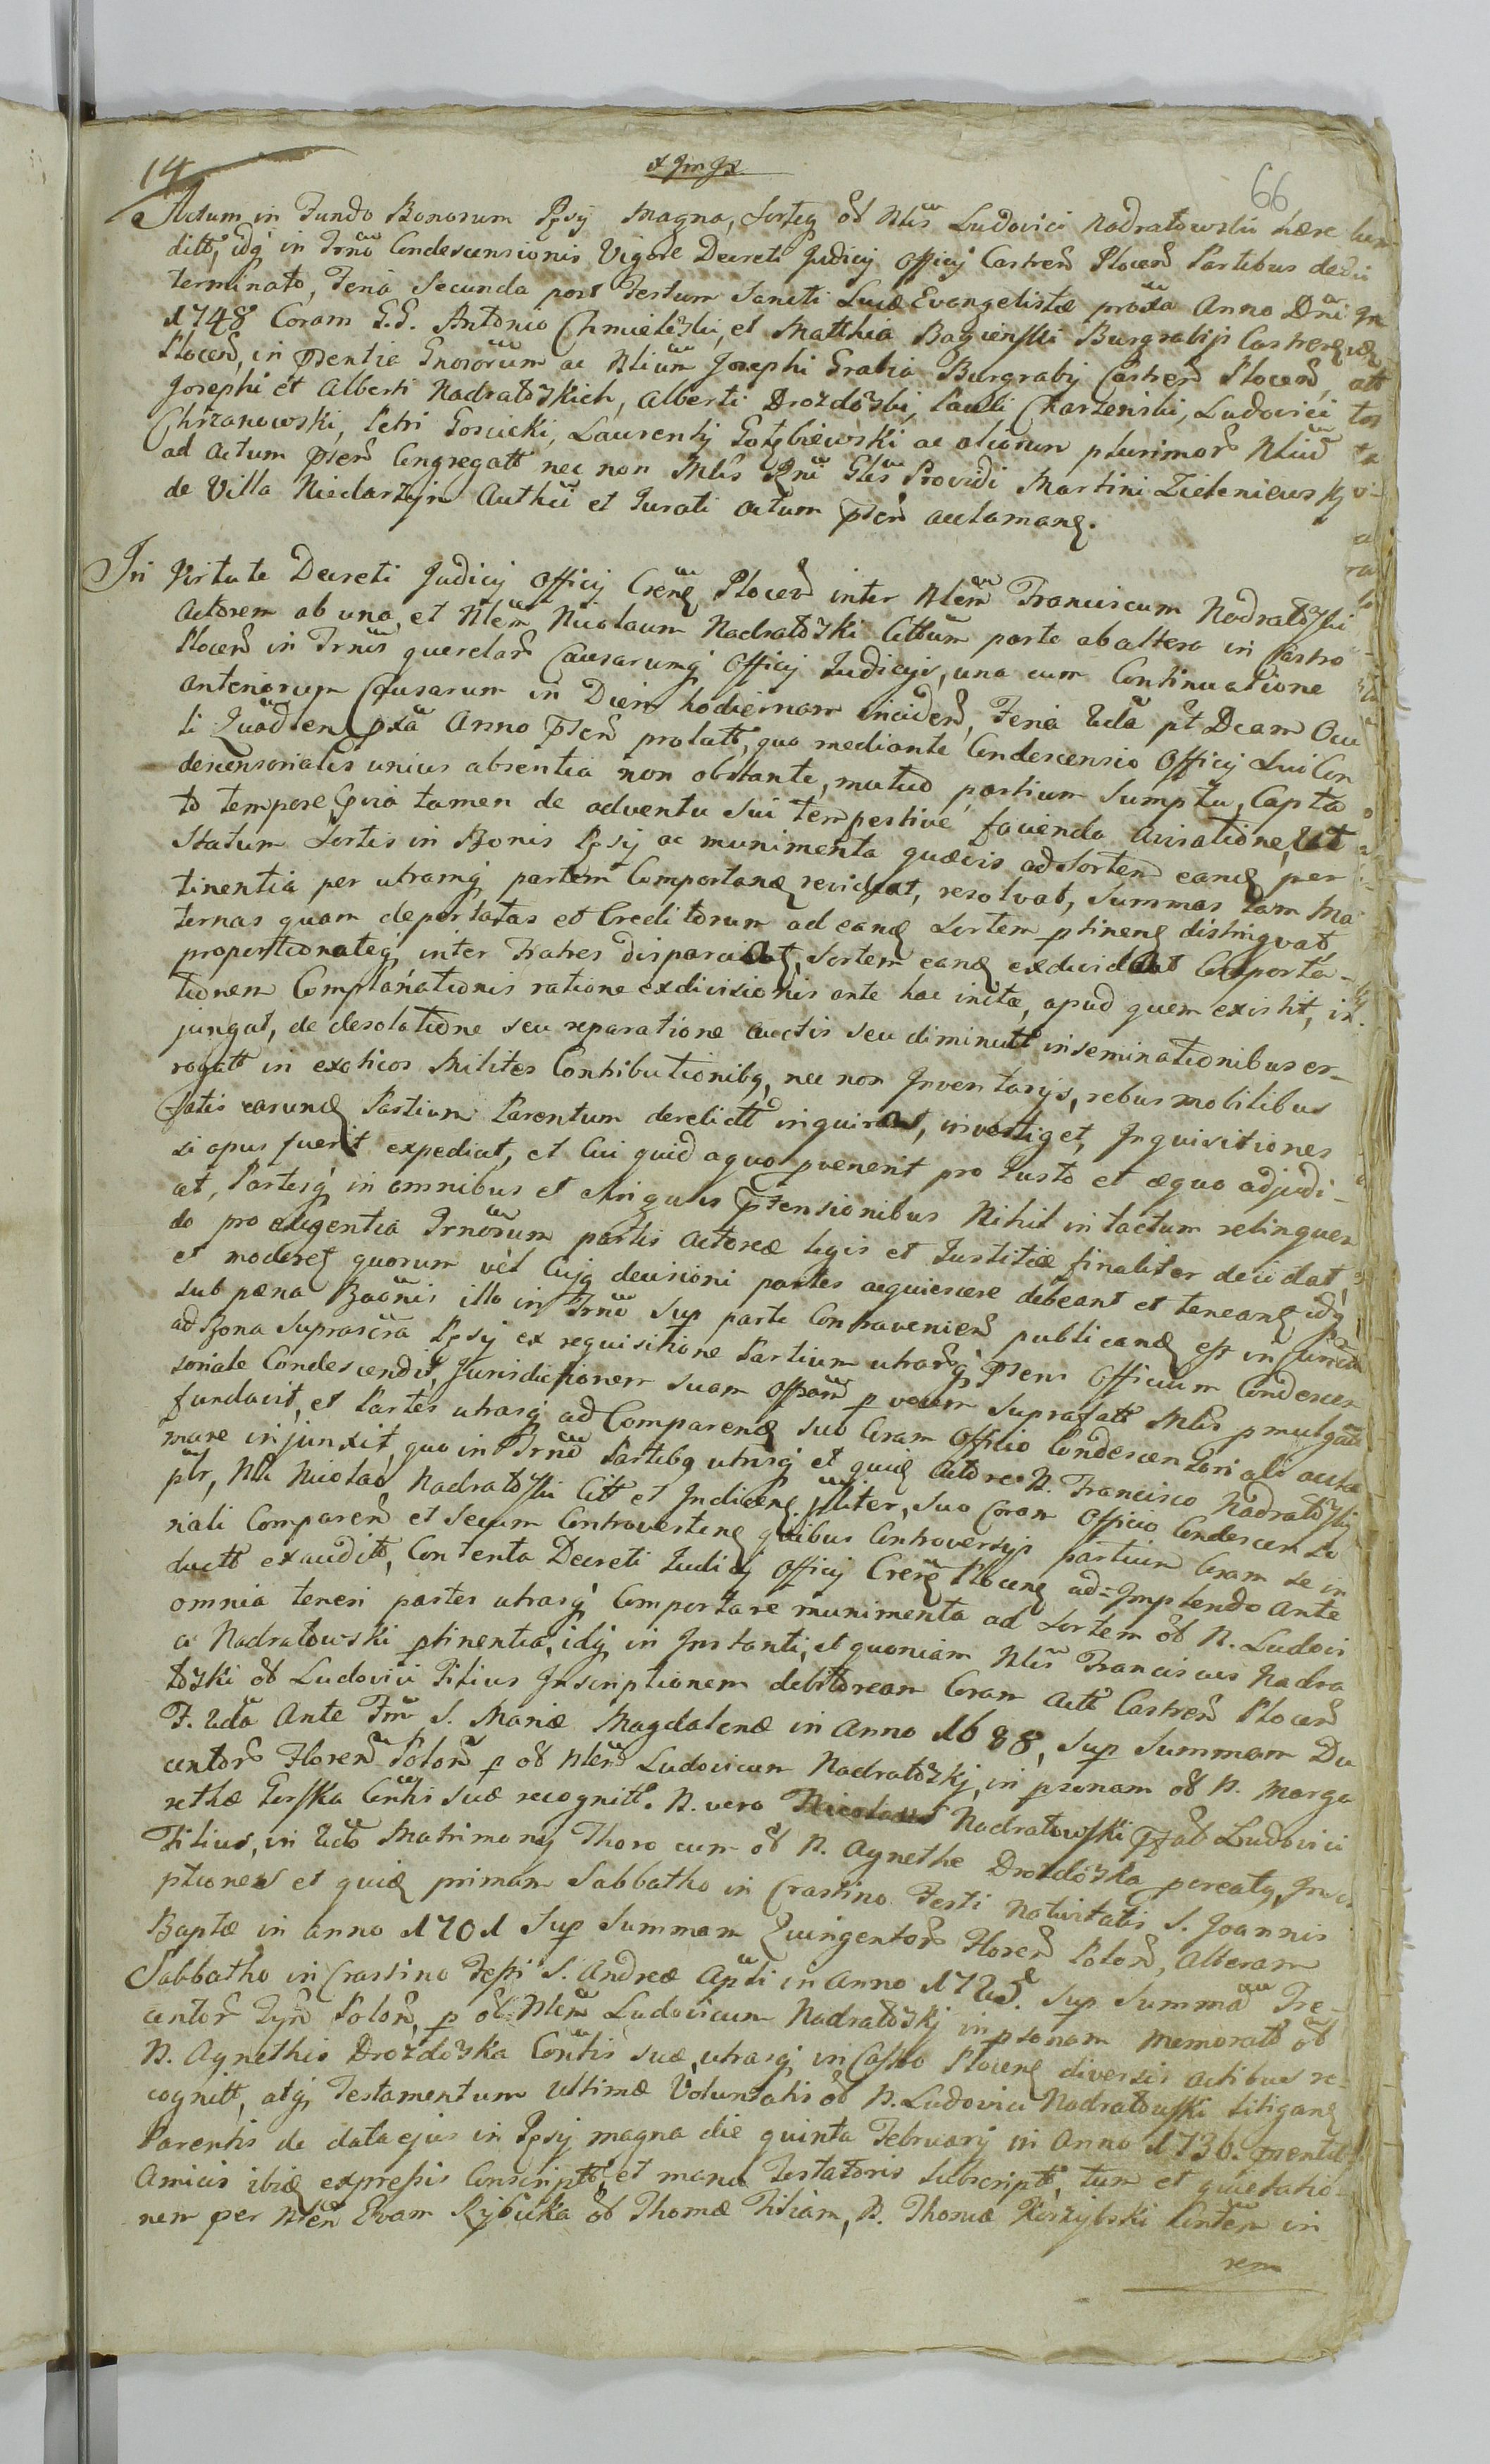 14
66
Actum in Fundo Bonorum Ppsij Magna, Sortiq olt Nlis Ludovici Nadratowski hære
ditt, idq in Trno Condescensionis Vigore Decreti Judicij Officij Castren Plocen Partibus
terminato, Feria Secunda post Festum Sancti Lucæ Evangelistæ proxa Anno Dni
1748 Coram G.G. Antonio Chmieleski, et Matthia Bagienski Burgrabijs Castren
Plocen, in pntia Gnosorum ac Nlium Josephi Grabia Burgrabij Castren Plocen,
Josephi et Alberti Nadratoskich, Alberti Drozdoski, Pauli Charzenski, Ludovici
Chrzanowski, Petri Gosiicki, Laurentij Gołębiewski ac aliorum plurimor Nliu
ad Actum pnsen Congregatt nec non Mlis Rni Glis Providi Martini Zieleniewski
de Villa Niedarzyn Authci et Jurati Actum pnsen acclamans.
In Virtute Decreti Judicij Officij Cren Plocen inter Nlem Franciscum Nadratoski
Actorem ab una, et Nlem Nicolaum Nadratoski Cittum parte ab altera in Castro
Plocen in Trnis querelar Causarumq Officij Judicijs, una cum Continuatione
anteriorum Causarum in Diem hodiernam inciden, Feria 2da pt Dcam Ocu
li Quadlen pxa Anno pnsen prolatt, quo mediante Condescensio Officij Sui Con
descensorialis unius absentia non obstante, mutuo partium sumptu, Capta
to tempore pvia tamen de adventu sui tempestive facienda avisatione,
Statum Sortis in Bonis Ppsij ac munimenta quævis ad Sortem eand per
tinentia per utramq partem Comportand revideat, resolvat, Summas tam Ma
ternas quam deportatas et Creditorum ad eand Sortem ptinen distinguat,
proportionateq inter Fratres disparciat, Sortem eand exdividat Comporta-
tionem Complanationis ratione exdivisionis ante hac initæ, apud quem existit, in
jungat, de desolatione seu reparatione auctis seu diminutt inseminationibus er-
rogatt in exoticos Milites Contributionibq, nec non Inventarijs, rebus mobilibus
fatis earund Partium Parentum derelictt inquirat, investiget, Inquisitiones
si opus fuerit expediat, et Cui quid a quo pvenerit pro Justo et æquo adjudi-
at, Partesq in omnibus et singulis ptensionibus Nihil intactum relinquen
do pro exigentia Trnorum partis Actoreæ legis et Justitiæ finaliter decidat,
et moderet quorum vel Cujq decisioni partes acquiescere debeant et teneant, idq
sub pæna Baonis illo in Trno Sup parte Contravenien publicand est in
ad Bona Suprascra Ppsij ex requisitione Partium utrarq pnsens Officium Condescen
soriale Condescendit, Jurisdictionem suam Offosam p vocem Suprafatt Mlis pmulgare
fundavit, et Partes utrasq ad Comparend suo Coram Officio Condescensoriali accla
mare injunxit, quo in Trno Partibq utrisq et quid Actore N. Francisco Nadratoski
plr, Nli Nicolao Nadratoski Citt et Indicen pliter, suo Coram Officio Condescenso
riali Comparen et Secum Controverten quibus Controversijs partium Coram se in
ductt exauditt, Contenta Decreti Judicij Officij Cren Plocen ad-Implendo Ante
omnia teneri partes utrasq Comportare munimenta ad Sortem olt N. Ludovi
ci Nadratowski ptinentia, idq in Instanti, et quoniam Nlis Franciscus Nadra
toski olt Ludovici Filius Inscriptionem debitoream Coram Actt Castren Plocen
F. 2da Ante Fm S. Mariæ Magdalenæ in Anno 1688, Sup Summam Du
centor Floren Polon p olt Nlem Ludovicum Nadratoskj, in psonam olt N. Marga
rethæ Gosska Conthis suæ recognitt. N. vero Nicolaus Nadratowski pfat Ludovici
Filius, in 2do Matrimonij Thoro cum olt N. Agnethe Drozdoska pcreatq, Inscri
ptiones et quid primam Sabbatho in Crastino Festi Nativitatis S. Joannis
Baptæ in anno 1701 Sup Summam Quingentor Floren Polon, Alteram
Sabbatho in Crastino Festi S. Andreæ Apli in Anno Sup Summa Tre-
centor Flren Polon, p olt Nlem Ludovicum Nadratoskj in psonam memoratt olt
N. Agnethis Drozdoska Contis suæ, utrasq in Castro Plocen diversis actibus re-
cognitt, atq Testamentum Ultimæ Voluntatis olt N. Ludovici Nadratowski litigan
Parentis de data ejus in Ppsij magna die quinta Februarij in Anno 1736. pnentib
Amicis ibid expressis Conscriptt, et manu Testatoris Subscriptt, tum et quietatio-
nem per Nlem Evam Rybicka olt Thomæ Filiam, N. Thomæ Kozibski Conthem in
rem